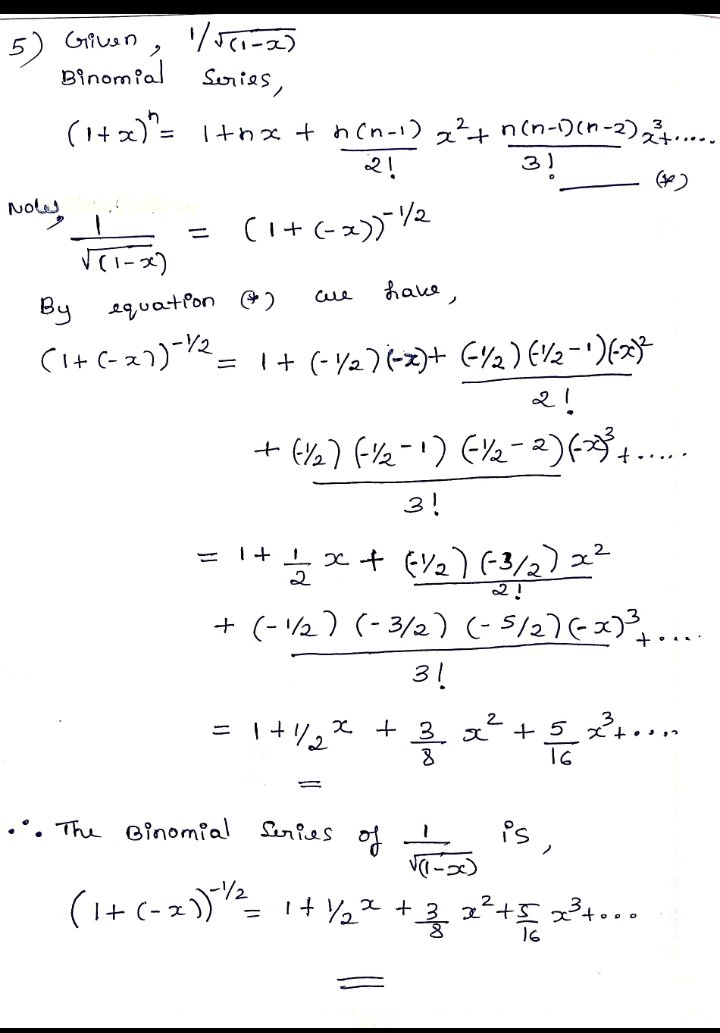 5) Given, 1/√(1-x)
Binomial Series,
(1+x)^n = 1+nx + n(n-1)/2! x^2 + n(n-1)(n-2)/3! x^3+.....
——— (*)
Now, 1/√(1-x) = (1+(-x))^-1/2
By equation (*) we have,
(1+(-x))^-1/2 = 1 + (-1/2)(-x) + (-1/2)(-1/2-1)(-x)^2/2!
+ (-1/2)(-1/2-1)(-1/2-2)(-x)^3/3! + .....
= 1 + 1/2 x + (-1/2)(-3/2)x^2/2!
+ (-1/2)(-3/2)(-5/2)(-x)^3/3! + ....
= 1 + 1/2 x + 3/8 x^2 + 5/16 x^3 + ....
∴ The Binomial Series of 1/√(1-x) is,
(1+(-x))^-1/2 = 1 + 1/2 x + 3/8 x^2 + 5/16 x^3 + ...